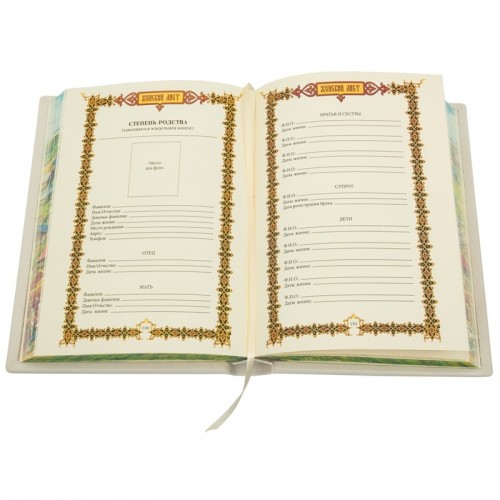 ЖЕНСКИЙ ЛИСТ
СТЕПЕНЬ РОДСТВА
(заполняется владельцем книги)
Место
для фото
Фамилия
Имя/Отчество
Девичья фамилия
Даты жизни
Место рождения
Адрес
Телефон
ОТЕЦ
Фамилия
Имя/Отчество
Даты жизни
МАТЬ
Фамилия
Девичья фамилия
Имя/Отчество
Даты жизни
ЖЕНСКИЙ ЛИСТ
БРАТЬЯ И СЕСТРЫ
Ф.И.О.
Даты жизни
Ф.И.О.
Даты жизни
Ф.И.О.
Даты жизни
СУПРУГ
Ф.И.О.
Даты жизни
Дата регистрации брака
ДЕТИ
Ф.И.О.
Даты жизни
Ф.И.О.
Даты жизни
Ф.И.О.
Даты жизни
Ф.И.О.
Даты жизни